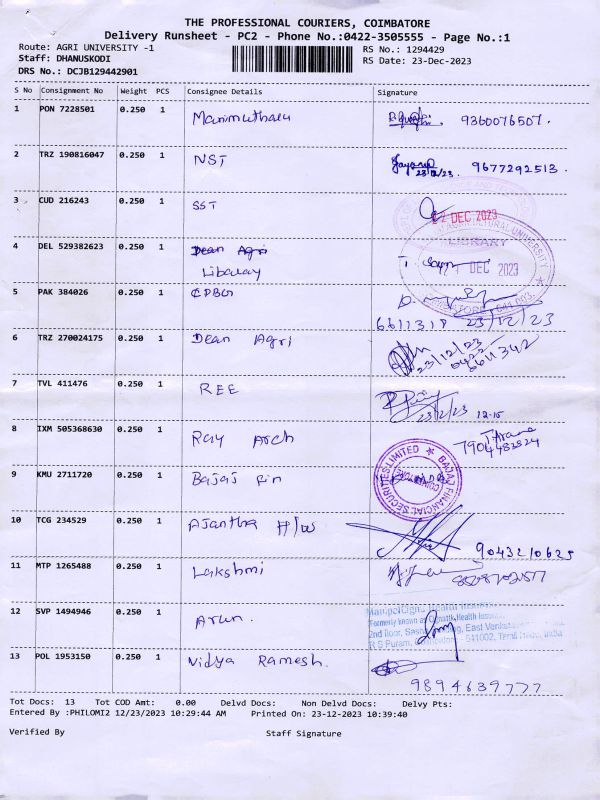 THE PROFESSIONAL COURIERS, COIMBATORE
Delivery Runsheet - PC2 - Phone No.:0422-3505555 - Page No.:1
Route: AGRI UNIVERSITY -1 RS No.: 1294429
Staff: DHANUSKODI RS Date: 23-Dec-2023
DRS No.: DCJB129442901
S No Consignment No Weight PCS Consignee Details Signature
1 PON 7228501 0.250 1 Manimuthalu 9360076507.
2 TRZ 190816047 0.250 1 NST 23/12/23 9677292513.
3 CUD 216243 0.250 1 SST
DEC 2023
AGRICULTURAL UNIVERSITY
LIBRARY
4 DEL 529382623 0.250 1 Dean Agri
Libaray DEC 2023
5 PAK 384026 0.250 1 CPBG
6611318 23/12/23
6 TRZ 270024175 0.250 1 Dean Agri 23/12/23
0422
6611342
7 TVL 411476 0.250 1 REE
23/12/23 12-15
8 IXM 505368630 0.250 1 Ray Arch
7904483524
9 KMU 2711720 0.250 1 Bajaj Fin BAJAJ FINANCIAL SECURITIES LIMITED
COIMBATORE
10 TCG 234529 0.250 1 Ajantha H/W 9043210625
11 MTP 1265488 0.250 1 Lakshmi
12 SVP 1494946 0.250 1 Arun.
Formerly known as Health
2nd floor, East
R S Puram, 641002, Tamil Nadu, India
13 POL 1953150 0.250 1 Vidya Ramesh.
9894639777
Tot Docs: 13 Tot COD Amt: 0.00 Delvd Docs: Non Delvd Docs: Delvy Pts:
Entered By :PHILOMI2 12/23/2023 10:29:44 AM Printed On: 23-12-2023 10:39:40
Verified By Staff Signature